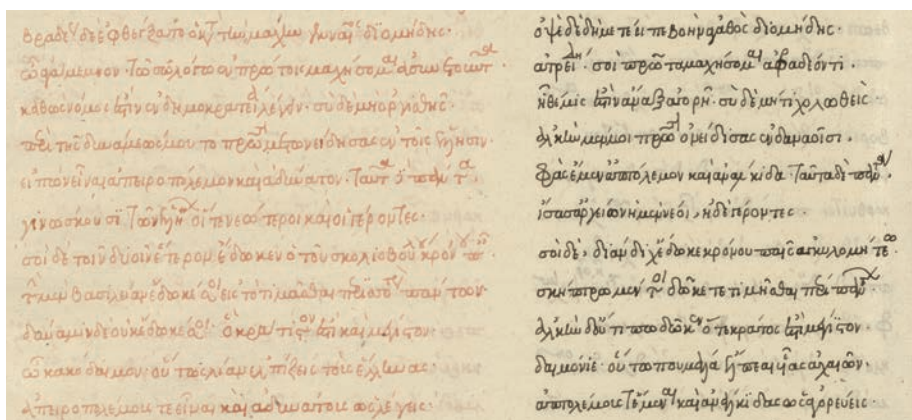 βραδέως δὲ ἐφθέγξατο ὁ κατὰ τὴν μάχην γενναῖος διομήδης·
ὦ ἀγάμεμνον· τῶ σῶ λόγω πρώτοις μαχήσομαι ἀσυνετοῦντι
καθὼς νόμος ἐστὶν ἐν δημοκρατεία λέγειν· σὺ δὲ μὴ ὀργισθῆς·
περὶ τῆς δυνάμεώς μου τὸ πρῶτον μὲ ὠνείδησας ἐν τοῖς ἕλλησιν·
εἰπὼν εἶναι ἀπειροπόλεμον καὶ ἀδύνατον· ταῦτα δὲ πάντα
γινώσκουσι τῶν ἑλλήνων οἵ τε νεώτεροι καὶ οἱ γέροντες·
σοὶ δὲ τοῖν δυοῖν ἕτερον ἔδωκεν ὁ τοῦ σκολιοβούλου κρόνου παῖς
τὴν μὲν βασιλείαν ἔδωκέ σοι εἰς τὸ τιμᾶσθαι πάντων·
δύναμιν δὲ οὐκ ἔδωκέ σοι· ὃ κράτιστόν ἐστι καὶ μέγιστον·
ὦ κακόδαιμον· οὕτως λίαν ἐλπίζεις τοὺς ἕλληνας·
ἀπειροπολέμους τε εἶναι καὶ ἀδυνάτους ὡς λέγεις·
ὀψὲ δὲ δὴ μετέειπε βοὴν ἀγαθὸς διομήδης·
ἀτρείδη σοὶ πρῶτα μαχήσομαι ἀφραδέοντι·
ἣ θέμις ἐστὶν ἄναξ ἀγορῆ· σὺ δὲ μή τι χολωθεὶς
ἀλκὴν μέν μοι πρῶτον ὀνείδισας ἐν δαναοῖσι·
φὰς ἔμεν ἀπτόλεμον καὶ ἀνάλκιδα· ταῦτα δὲ πάντα
ἴσασ' ἀργείων ἡμὲν νέοι, ἠδὲ γέροντες·
σοὶ δὲ, διάνδιχα δῶκε κρόνου παῖς ἀγκυλομήτεω·
σκήπτρω μέν τοι δῶκε τετιμῆσθαι περὶ πάντων·
ἀλκὴν δ' οὔτι τοι δῶκεν ὅ τε κράτος ἐστὶ μέγιστον·
δαιμόνιε· οὕτω που μάλα ἔλπεαι υἷας ἀχαιῶν·
ἀπτολέμους τ' ἔμεναι καὶ ἀνάλκιδας ὡς ἀγορεύεις·